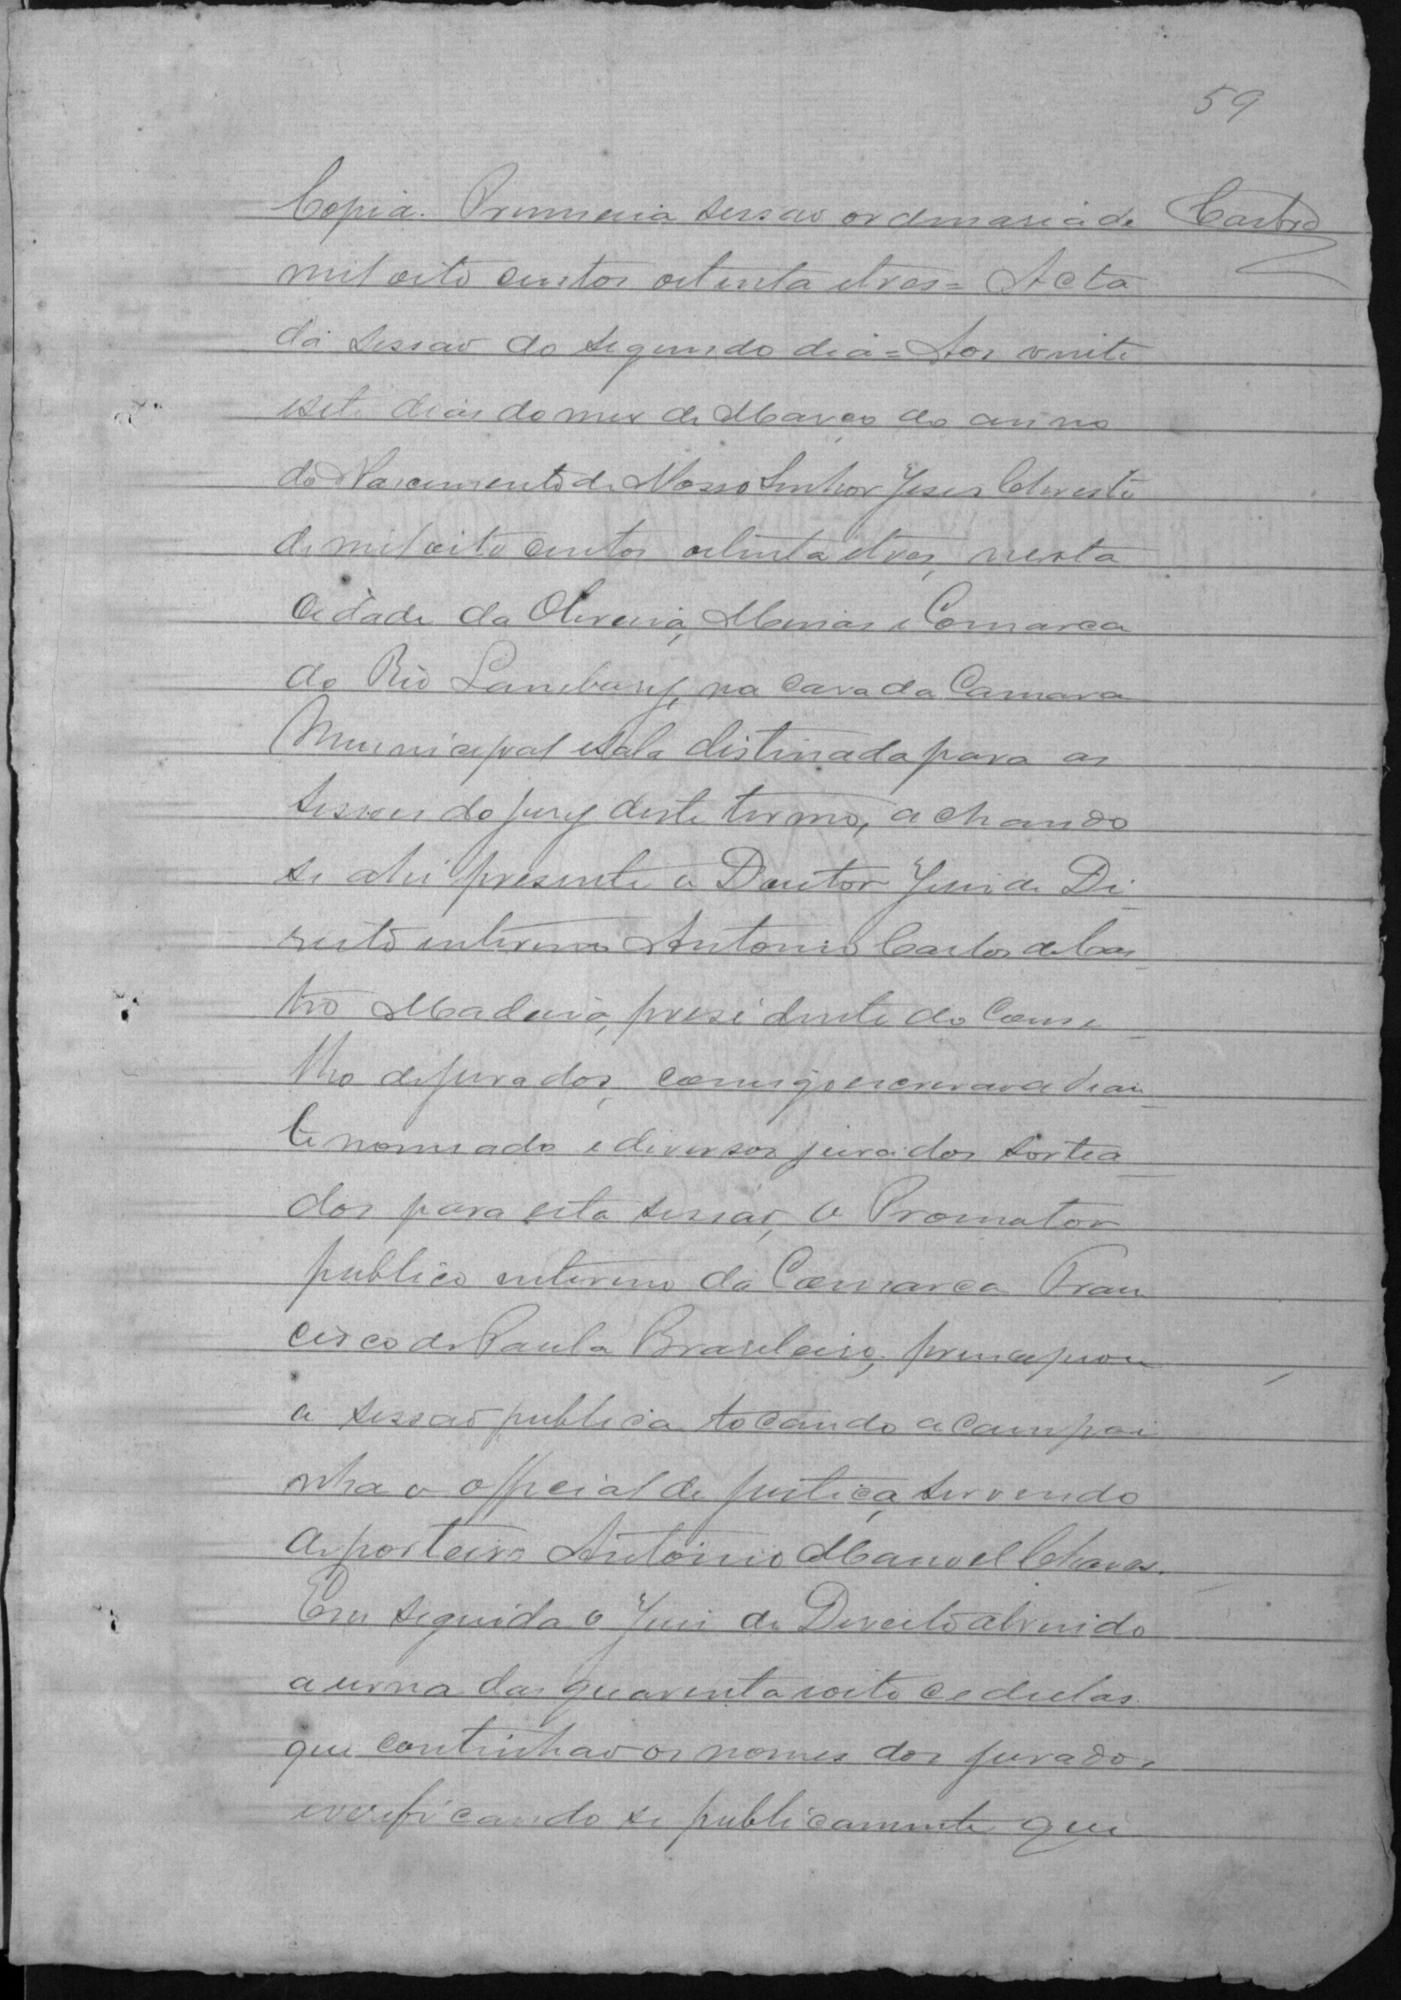 59
Copia. Primeira sessao ordinaria de Castro
mil oito centos oitenta e tres = Acta
da sessao do segundo dia = Aos vinte
e sete dias do mez de Março do anno
do Nascimento de Nosso Senhor Jesus Christo
de mil oito centos oitenta e tres, nesta
cidade da Oliveira, Minas e Comarca
do Rio Lambary, na casa da Camara
Municipal e sala distinada para as
sessoes do jury deste termo, achando
se ahi presente o Doutor Juis de Di-
reito interino Antonio Carlos de Cas-
tro Madeira, presidente do Conse-
lho de jurados, comigo escrivao adian-
te nomeado e diversos jurados sortea-
dos para esta sessao, o Promotor
publico interino da Comarca Fran
cisco de Paula Brasileiro, principiou
a sessao publica tocando a campai
nha o official de justiça servindo
de porteiro Antonio Manoel Chaves.
Em seguida o Juis de Direito abrindo
a urna das quarenta e oito cedulas
que continhao os nomes dos jurados
e verificando se publicamente que